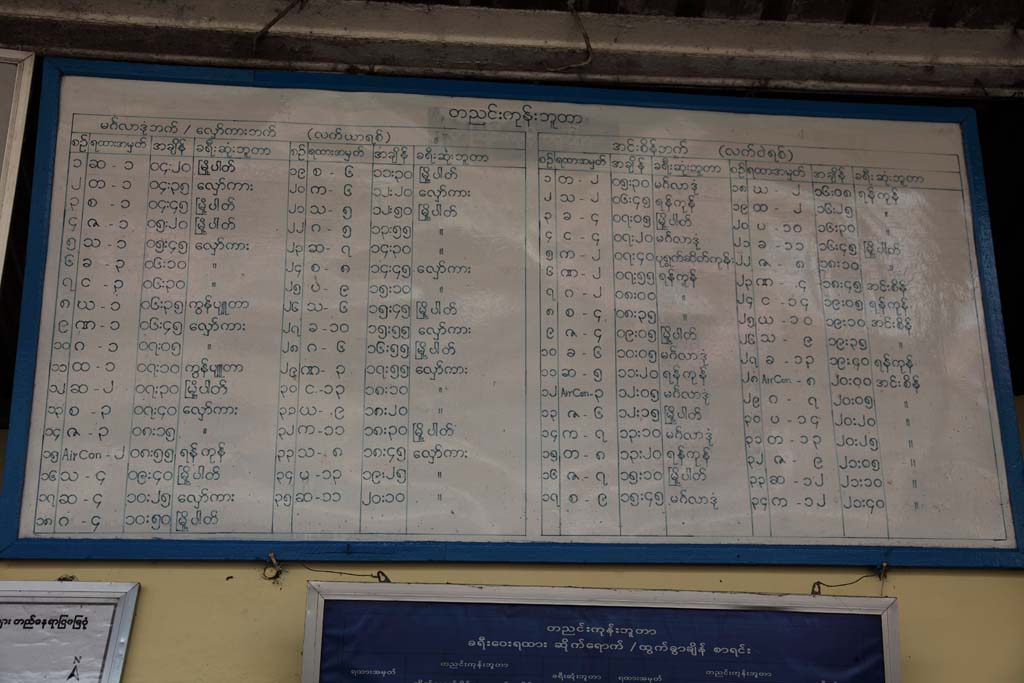 တညင်းကုန်းဘူတာ
မင်္ဂလာဒုံဘက် / လှော်ကားဘက် (လက်ယာရစ်)
စဉ် ရထားအမှတ် အချိန် ခရီးဆုံးဘူတာ စဉ် ရထားအမှတ် အချိန် ခရီးဆုံးဘူတာ
၁ ဆ - ၁ ၀၄:၂၀ မြို့ပါတ် ၁၉ စ - ၆ ၁၁:၃၀ မြို့ပါတ်
၂ တ - ၁ ၀၄:၃၅ လှော်ကား ၂၀ က - ၆ ၁၂:၂၀ လှော်ကား
၃ စ - ၁ ၀၄:၄၅ မြို့ပါတ် ၂၁ သ - ၅ ၁၂:၅၀ မြို့ပါတ်
၄ ဇ - ၁ ၀၅:၂၀ မြို့ပါတ် ၂၂ ဂ - ၅ ၁၃:၅၅ "
၅ သ - ၁ ၀၅:၄၅ လှော်ကား ၂၃ ဆ - ၇ ၁၄:၃၀ "
၆ ခ - ၃ ၀၆:၁၀ " ၂၄ စ - ၈ ၁၄:၄၅ လှော်ကား
၇ င - ၃ ၀၆:၃၀ " ၂၅ ပ - ၉ ၁၅:၁၀ "
၈ ယ - ၁ ၀၆:၃၅ ကွန်ပျူတာ ၂၆ သ - ၆ ၁၅:၄၅ မြို့ပါတ်
၉ ဏ - ၁ ၀၆:၄၅ လှော်ကား ၂၇ ခ - ၁၀ ၁၅:၅၅ လှော်ကား
၁၀ ဂ - ၁ ၀၇:၀၅ " ၂၈ ဂ - ၆ ၁၆:၅၅ မြို့ပါတ်
၁၁ ထ - ၁ ၀၇:၁၀ ကွန်ပျူတာ ၂၉ ဏ - ၃ ၁၇:၅၅ လှော်ကား
၁၂ ဆ - ၂ ၀၇:၃၀ မြို့ပါတ် ၃၀ င - ၁၃ ၁၈:၁၀ "
၁၃ စ - ၃ ၀၇:၄၀ လှော်ကား ၃၁ ယ - ၉ ၁၈:၂၀ "
၁၄ ဇ - ၃ ၀၈:၁၅ " ၃၂ က - ၁၁ ၁၈:၃၀ မြို့ပါတ်
၁၅ AirCon - ၂ ၀၈:၅၅ ရန်ကုန် ၃၃ သ - ၈ ၁၈:၄၅ လှော်ကား
၁၆ သ - ၄ ၀၉:၄၀ မြို့ပါတ် ၃၄ မ - ၁၃ ၁၉:၂၅ "
၁၇ ဆ - ၄ ၁၀:၂၅ လှော်ကား ၃၅ ဆ - ၁၁ ၂၀:၁၀ "
၁၈ ဂ - ၄ ၁၀:၅၀ မြို့ပါတ်
အင်းစိန်ဘက် (လက်ဝဲရစ်)
စဉ် ရထားအမှတ် အချိန် ခရီးဆုံးဘူတာ စဉ် ရထားအမှတ် အချိန် ခရီးဆုံးဘူတာ
၁ တ - ၂ ၀၅:၃၀ မင်္ဂလာဒုံ ၁၈ ယ - ၂ ၁၆:၁၈ ရန်ကုန်
၂ သ - ၂ ၀၆:၄၅ ရန်ကုန် ၁၉ ထ - ၂ ၁၆:၂၅ "
၃ ခ - ၄ ၀၇:၀၅ မြို့ပါတ် ၂၀ ပ - ၁၀ ၁၆:၃၀ "
၄ င - ၄ ၀၇:၂၀ မင်္ဂလာဒုံ ၂၁ ခ - ၁၁ ၁၆:၄၅ မြို့ပါတ်
၅ က - ၂ ၀၇:၄၀ ပုရွက်ဆိတ်ကုန်း ၂၂ ဇ - ၈ ၁၈:၁၀ "
၆ ဏ - ၂ ၀၇:၅၅ ရန်ကုန် ၂၃ ဏ - ၄ ၁၈:၄၅ အင်းစိန်
၇ ဂ - ၂ ၀၈:၀၀ " ၂၄ င - ၁၄ ၁၉:၀၅ ရန်ကုန်
၈ စ - ၄ ၀၈:၃၅ " ၂၅ ယ - ၁၀ ၁၉:၁၀ အင်းစိန်
၉ ဇ - ၄ ၀၉:၀၅ မြို့ပါတ် ၂၆ သ - ၉ ၁၉:၃၅ "
၁၀ ခ - ၆ ၁၀:၀၅ မင်္ဂလာဒုံ ၂၇ ခ - ၁၃ ၁၉:၄၀ ရန်ကုန်
၁၁ ဆ - ၅ ၁၁:၂၀ ရန်ကုန် ၂၈ AirCon - ၈ ၂၀:၀၀ အင်းစိန်
၁၂ AirCon - ၃ ၁၂:၀၅ မင်္ဂလာဒုံ ၂၉ ဂ - ၇ ၂၀:၀၅ "
၁၃ ဇ - ၆ ၁၂:၁၅ မြို့ပါတ် ၃၀ ပ - ၁၄ ၂၀:၂၀ "
၁၄ က - ၇ ၁၃:၁၀ မင်္ဂလာဒုံ ၃၁ တ - ၁၃ ၂၀:၂၅ "
၁၅ တ - ၈ ၁၃:၂၀ ရန်ကုန် ၃၂ ဇ ၉ ၂၁:၀၅ "
၁၆ ဇ - ၇ ၁၅:၁၀ မြို့ပါတ် ၃၃ ဆ - ၁၂ ၂၁:၁၀ "
၁၇ စ - ၉ ၁၅:၄၅ မင်္ဂလာဒုံ ၃၄ က - ၁၂ ၂၁:၄၀ "
တည်နေရာပြမြေပုံ
N
တညင်းကုန်းဘူတာ
ခရီးဝေးရထား ဆိုက်ရောက် / ထွက်ခွာချိန် စာရင်း
ရထားအမှတ် တညင်းကုန်းဘူတာ ခရီးဆုံးဘူတာ ရထားအမှတ် တညင်းကုန်းဘူတာ